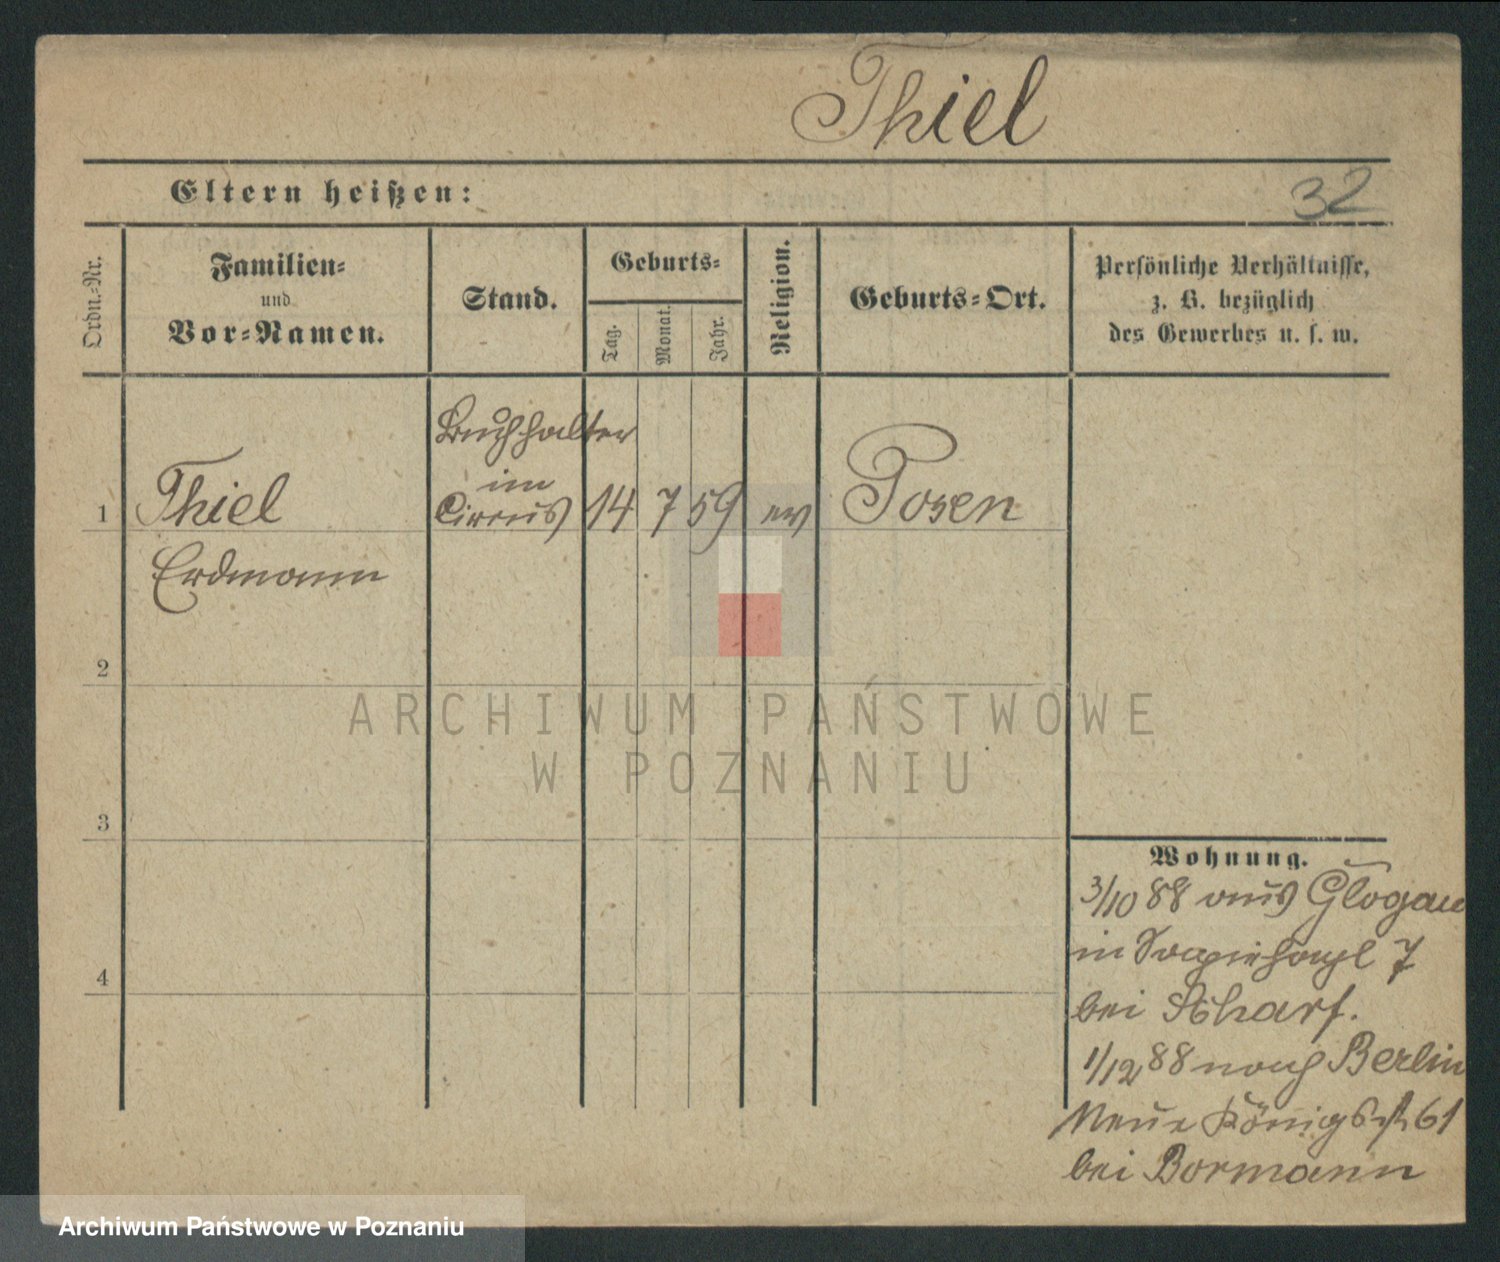 Thiel
Eltern heißen:
32
Ordn.-Nr.
Familien-
und
Vor-Namen.
Stand.
Geburts-
Tag.
Monat.
Jahr.
Religion.
Geburts-Ort.
Persönliche Verhältnisse,
z. B. bezüglich
des Gewerbes u. s. w.
1
Thiel
Erdmann
Buchhalter
im
Circus
14 7 59 ev Posen
2
3
4
Wohnung.
3/10 88 aus Glogau
in 7
bei Scharf.
1/12 88 nach Berlin
Neue Königsst 61
bei Bormann
ARCHIWUM PAŃSTWOWE
W POZNANIU
Archiwum Państwowe w Poznaniu